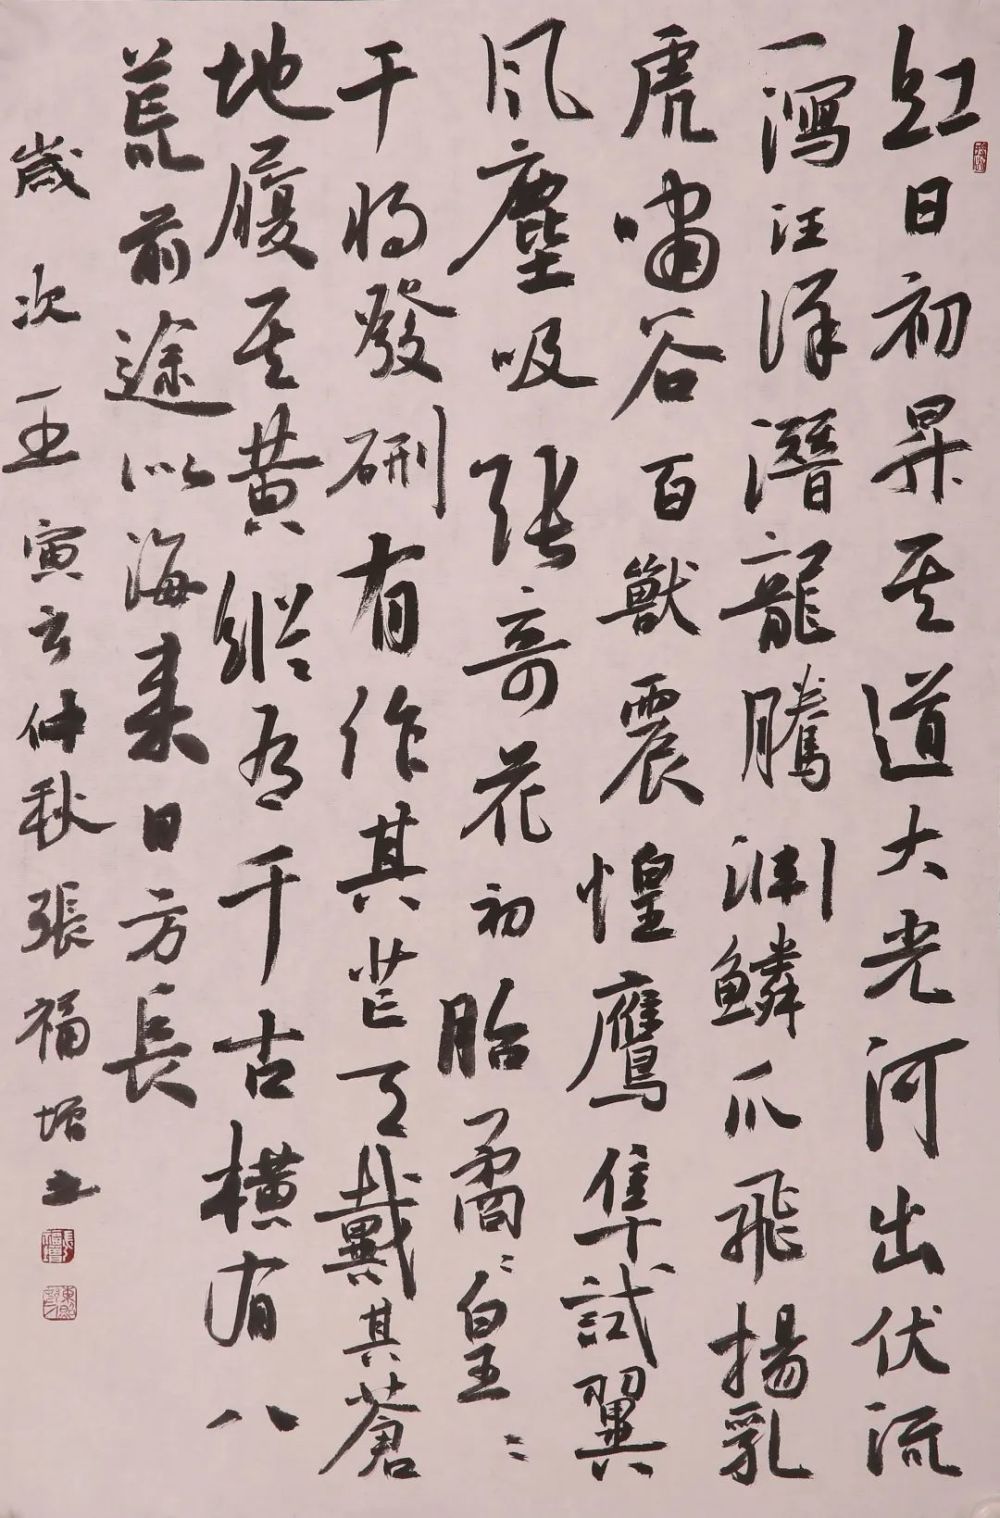 紅日初昇其道大光河出伏流
一瀉汪洋潛龍騰淵鱗爪飛揚乳
虎嘯谷百獸震惶鷹隼試翼
風塵吸張奇花初胎矞矞皇皇
干將發硎有作其芒天戴其蒼
地履其黃縱有千古橫有八
荒前途似海來日方長
歲次壬寅年仲秋張福增書
張福增